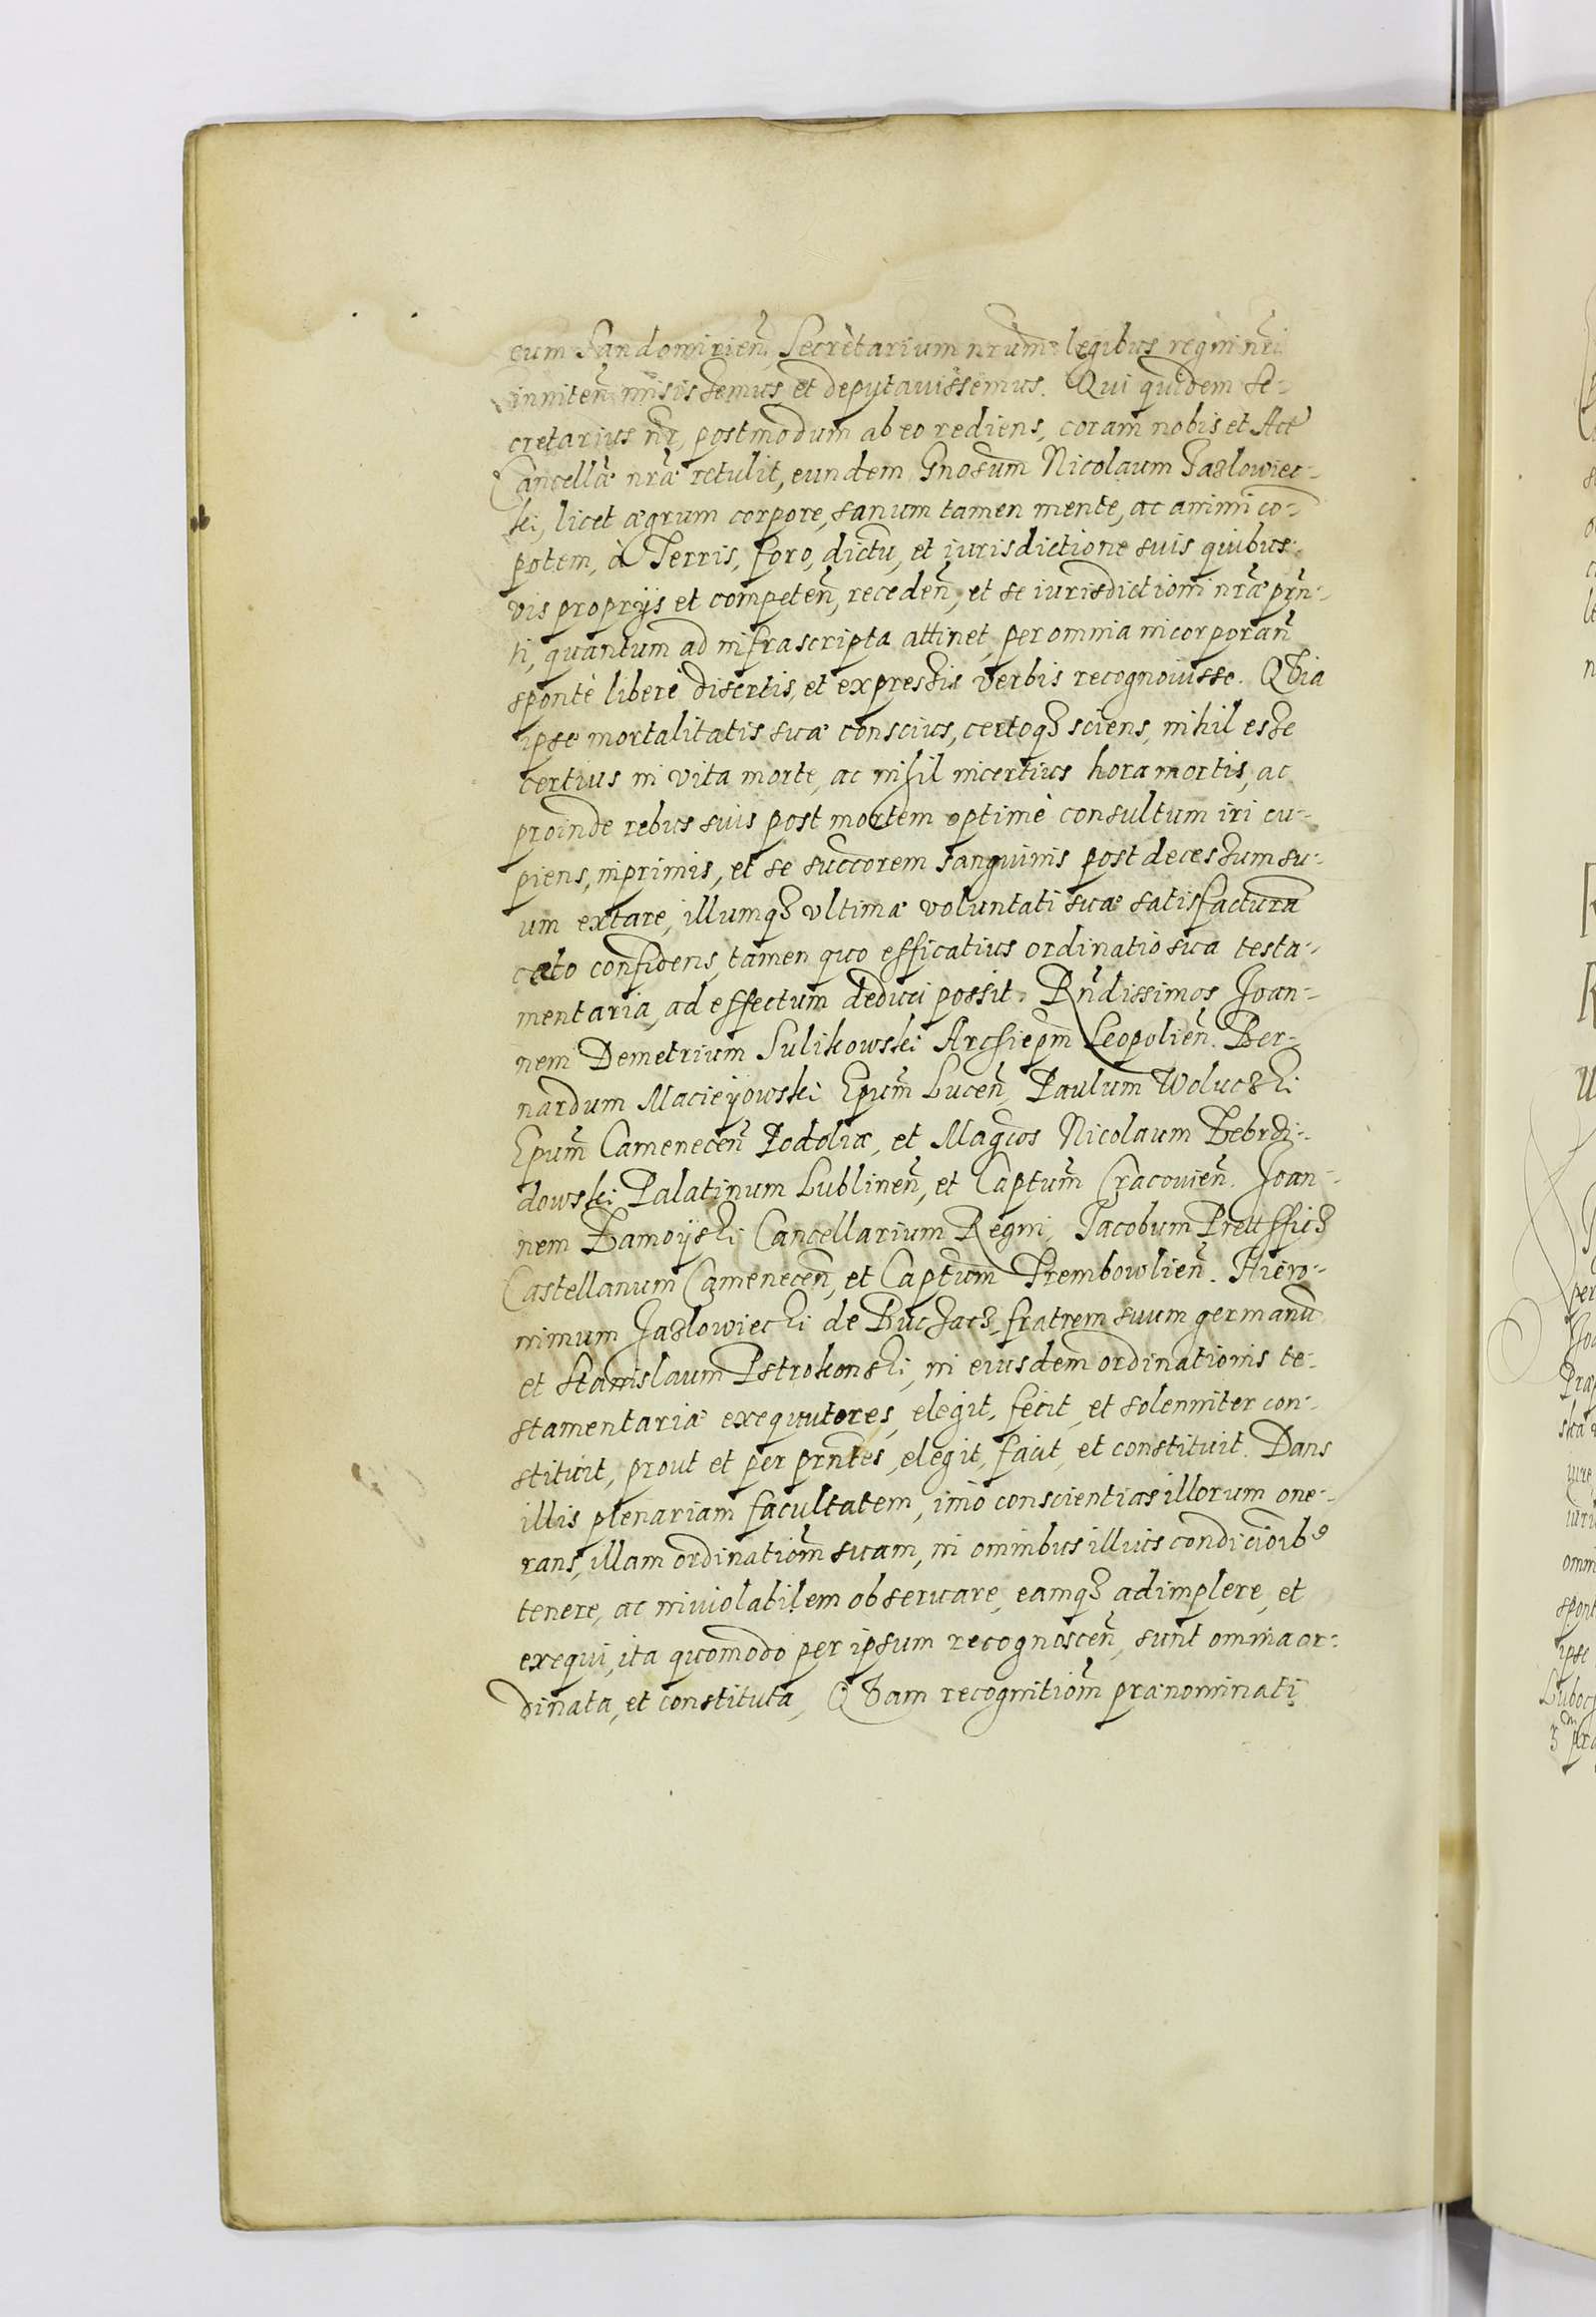 cum Sandomirien̄, Secretarium nrūm legibus regni nr̄i
inniten̄ misissemus, et deputauissemus. Qui quidem Se-
cretarius nr̄, postmodum ab eo rediens, coram nobis et Act
Cancellæ nr̄æ retulit, eundem Gnosum Nicolaum Jazlowiec-
ki, licet ægrum corpore, sanum tamen mente, ac animi co-
potem, à Terris, foro, dictu, et iurisdictione suis quibus-
vis proprijs et competen̄, receden̄, et se iurisdictioni nr̄æ prn̄-
ti, quantum ad infrascripta attinet, per omnia incorporan̄
sponte libere disertis, et expressis verbis recognouisse. Quia
ipse mortalitatis suæ conscius, certoq3 sciens, nihil esse
certius in vita morte, ac nihil incertius hora mortis, ac
proinde rebus suis post mortem optimè consultum iri cu-
piens, inprimis, et se succorem sanguinis post decessum su-
um extare, illumq3 vltimæ voluntati suæ satisfacturū
certo confidens, tamen quo efficatius ordinatio sua testa-
mentaria, ad effectum deduci possit. Rn̄dissimos Joan-
nem Demetrium Sulikowski Archiepm̄ Leopolien̄. Ber-
nardum Macieyowski Epum̄ Lucen̄, Paulum Woluczki
Epum̄ Camenecen̄ Podoliæ, et Magcos Nicolaum Zebrzi-
dowski Palatinum Lublinen̄, et Captum̄ Cracouien̄. Joan-
nem Zamoyski Cancellarium Regni, Jacobum Pretffich
Castellanum Camenecen̄, et Captum̄ Trembowlien̄. Hiero-
nimum Jazlowiecki de Buczacz, fratrem suum germanū
et Stanislaum Pstrokonski, in eiusdem ordinationis te-
stamentariæ exequutores, elegit, fecit, et solenniter con-
stituit, prout et per prn̄tes, elegit, facit, et constituit. Dans
illis plenariam facultatem, imo conscientias illorum one-
rans, illam ordinatiom̄ suam, in omnibus illius condicioib9
tenere, ac inuiolabilem obseruare, eamq3 adimplere, et
exequi, ita quomodo per ipsum recognoscen̄, sunt omnia or-
dinata, et constituta, Quam recognitiom̄ prænominati